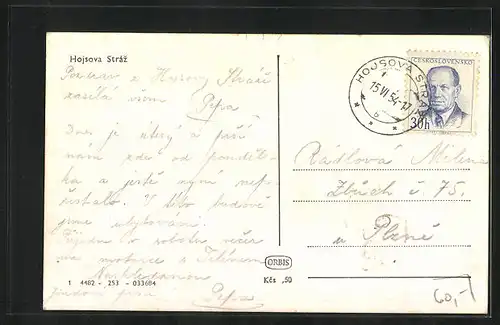 Hojsova Stráž
Pozdrav z Hojsovy Stráže
zasílá všem Pepa
Dnes je úterý a prší
nám zde od pondělka
a ještě nyní nepřestalo. V této budově
jsme ubytováni.
Přijedu v sobotu večer
na motorce s
Nashledanou
Pepa
1 4482 - 253 - 033684
ORBIS
Kčs ,50
HOJSOVA STRÁŽ
15.VI.54-17
b
ČESKOSLOVENSKO
30h
Rádlová Milena
Zbůch č. 75.
u Plzně
60,-